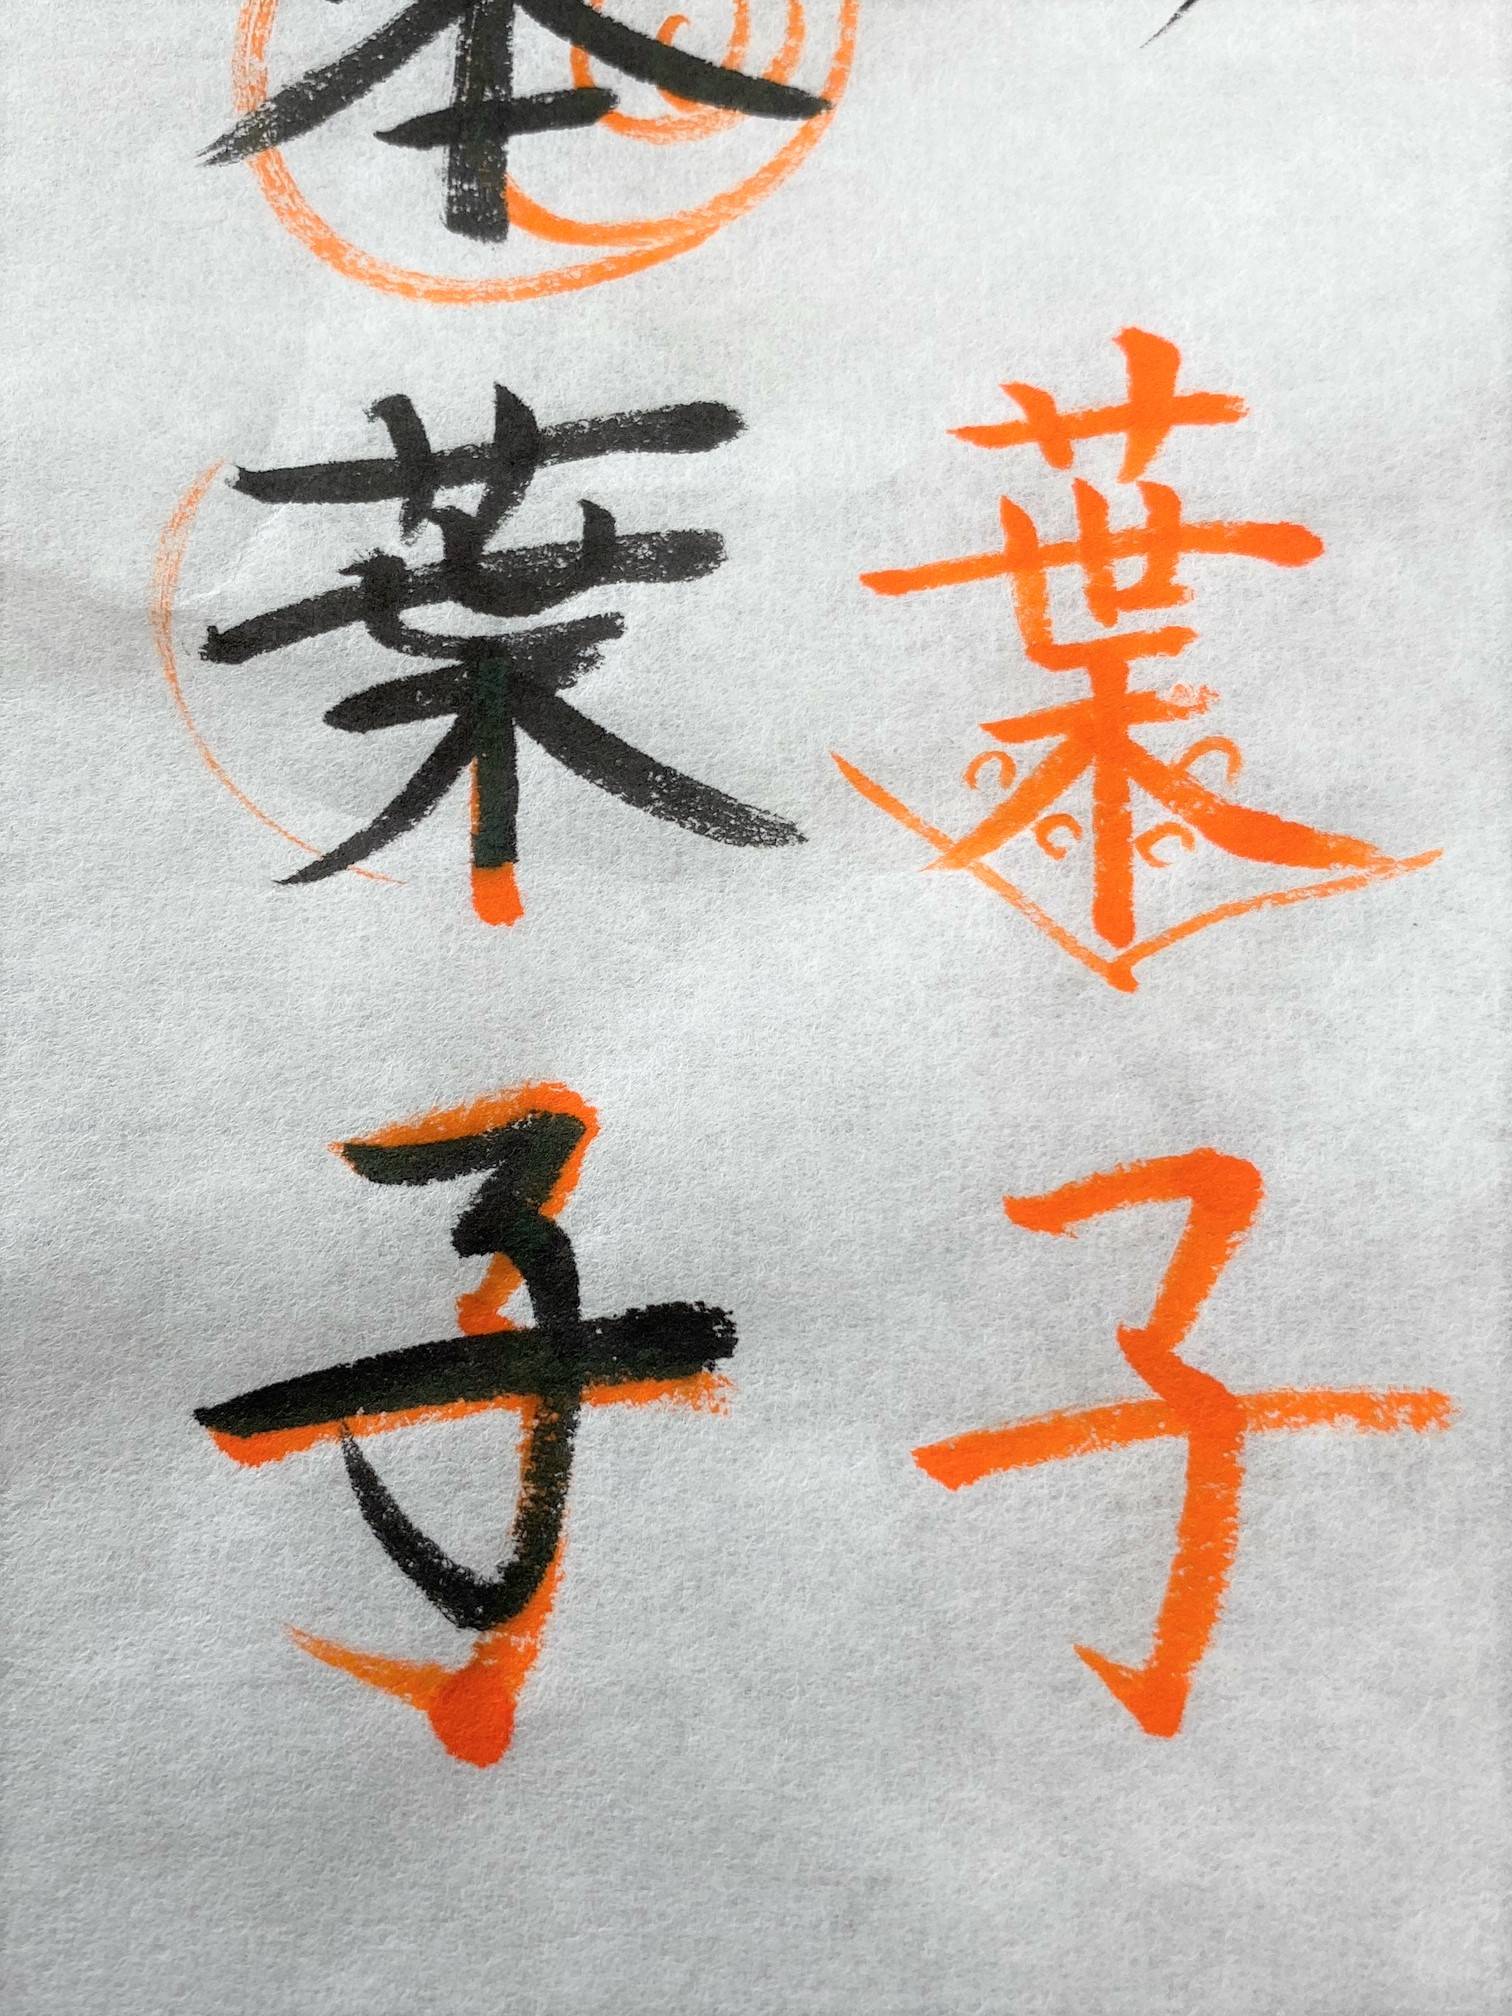 葉子
本葉子